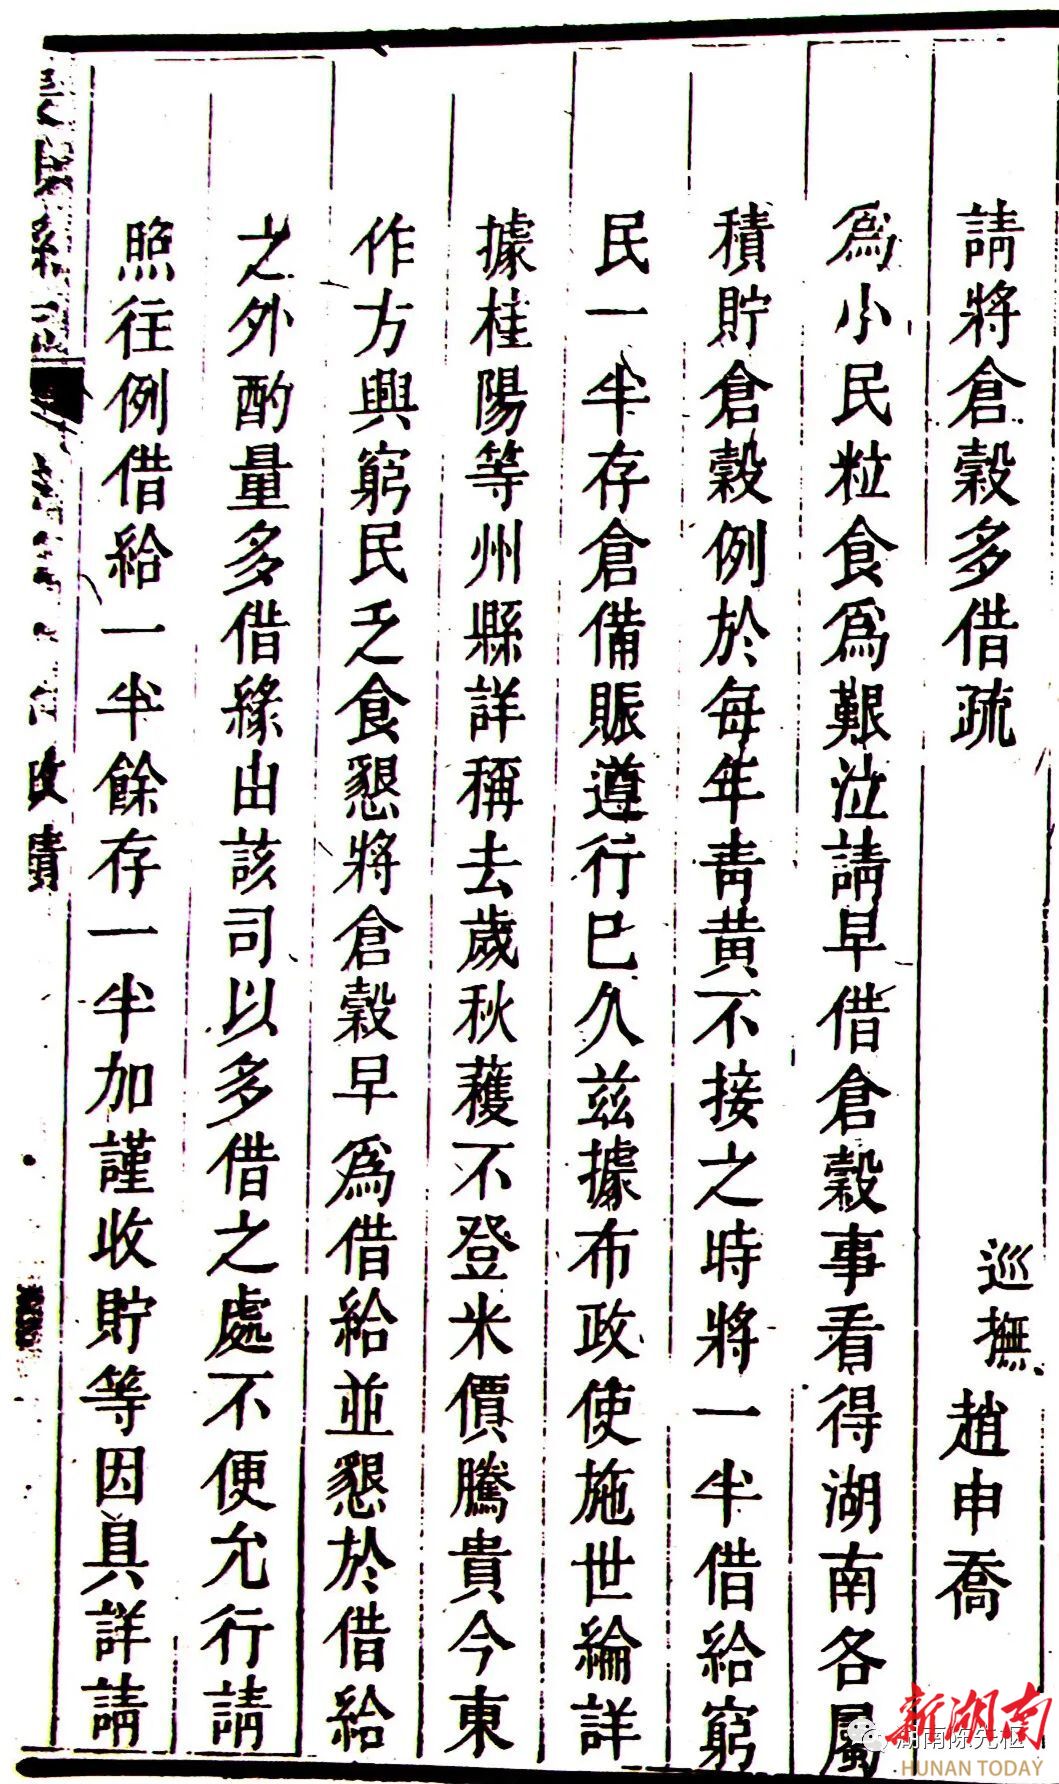 請將倉穀多借疏
巡撫趙申喬
爲小民粒食爲艱泣請早借倉穀事看得湖南各屬
積貯倉穀例於每年青黃不接之時將一半借給窮
民一半存倉備賑遵行已久茲據布政使施世綸詳
據桂陽等州縣詳稱去歲秋穫不登米價騰貴今東
作方興窮民乏食懇將倉穀早爲借給並懇於借給
之外酌量多借緣由該司以多借之處不便允行請
照往例借給一半餘存一半加謹收貯等因具詳請
政績
新湖南
HUNAN TODAY
湖南陈先枢